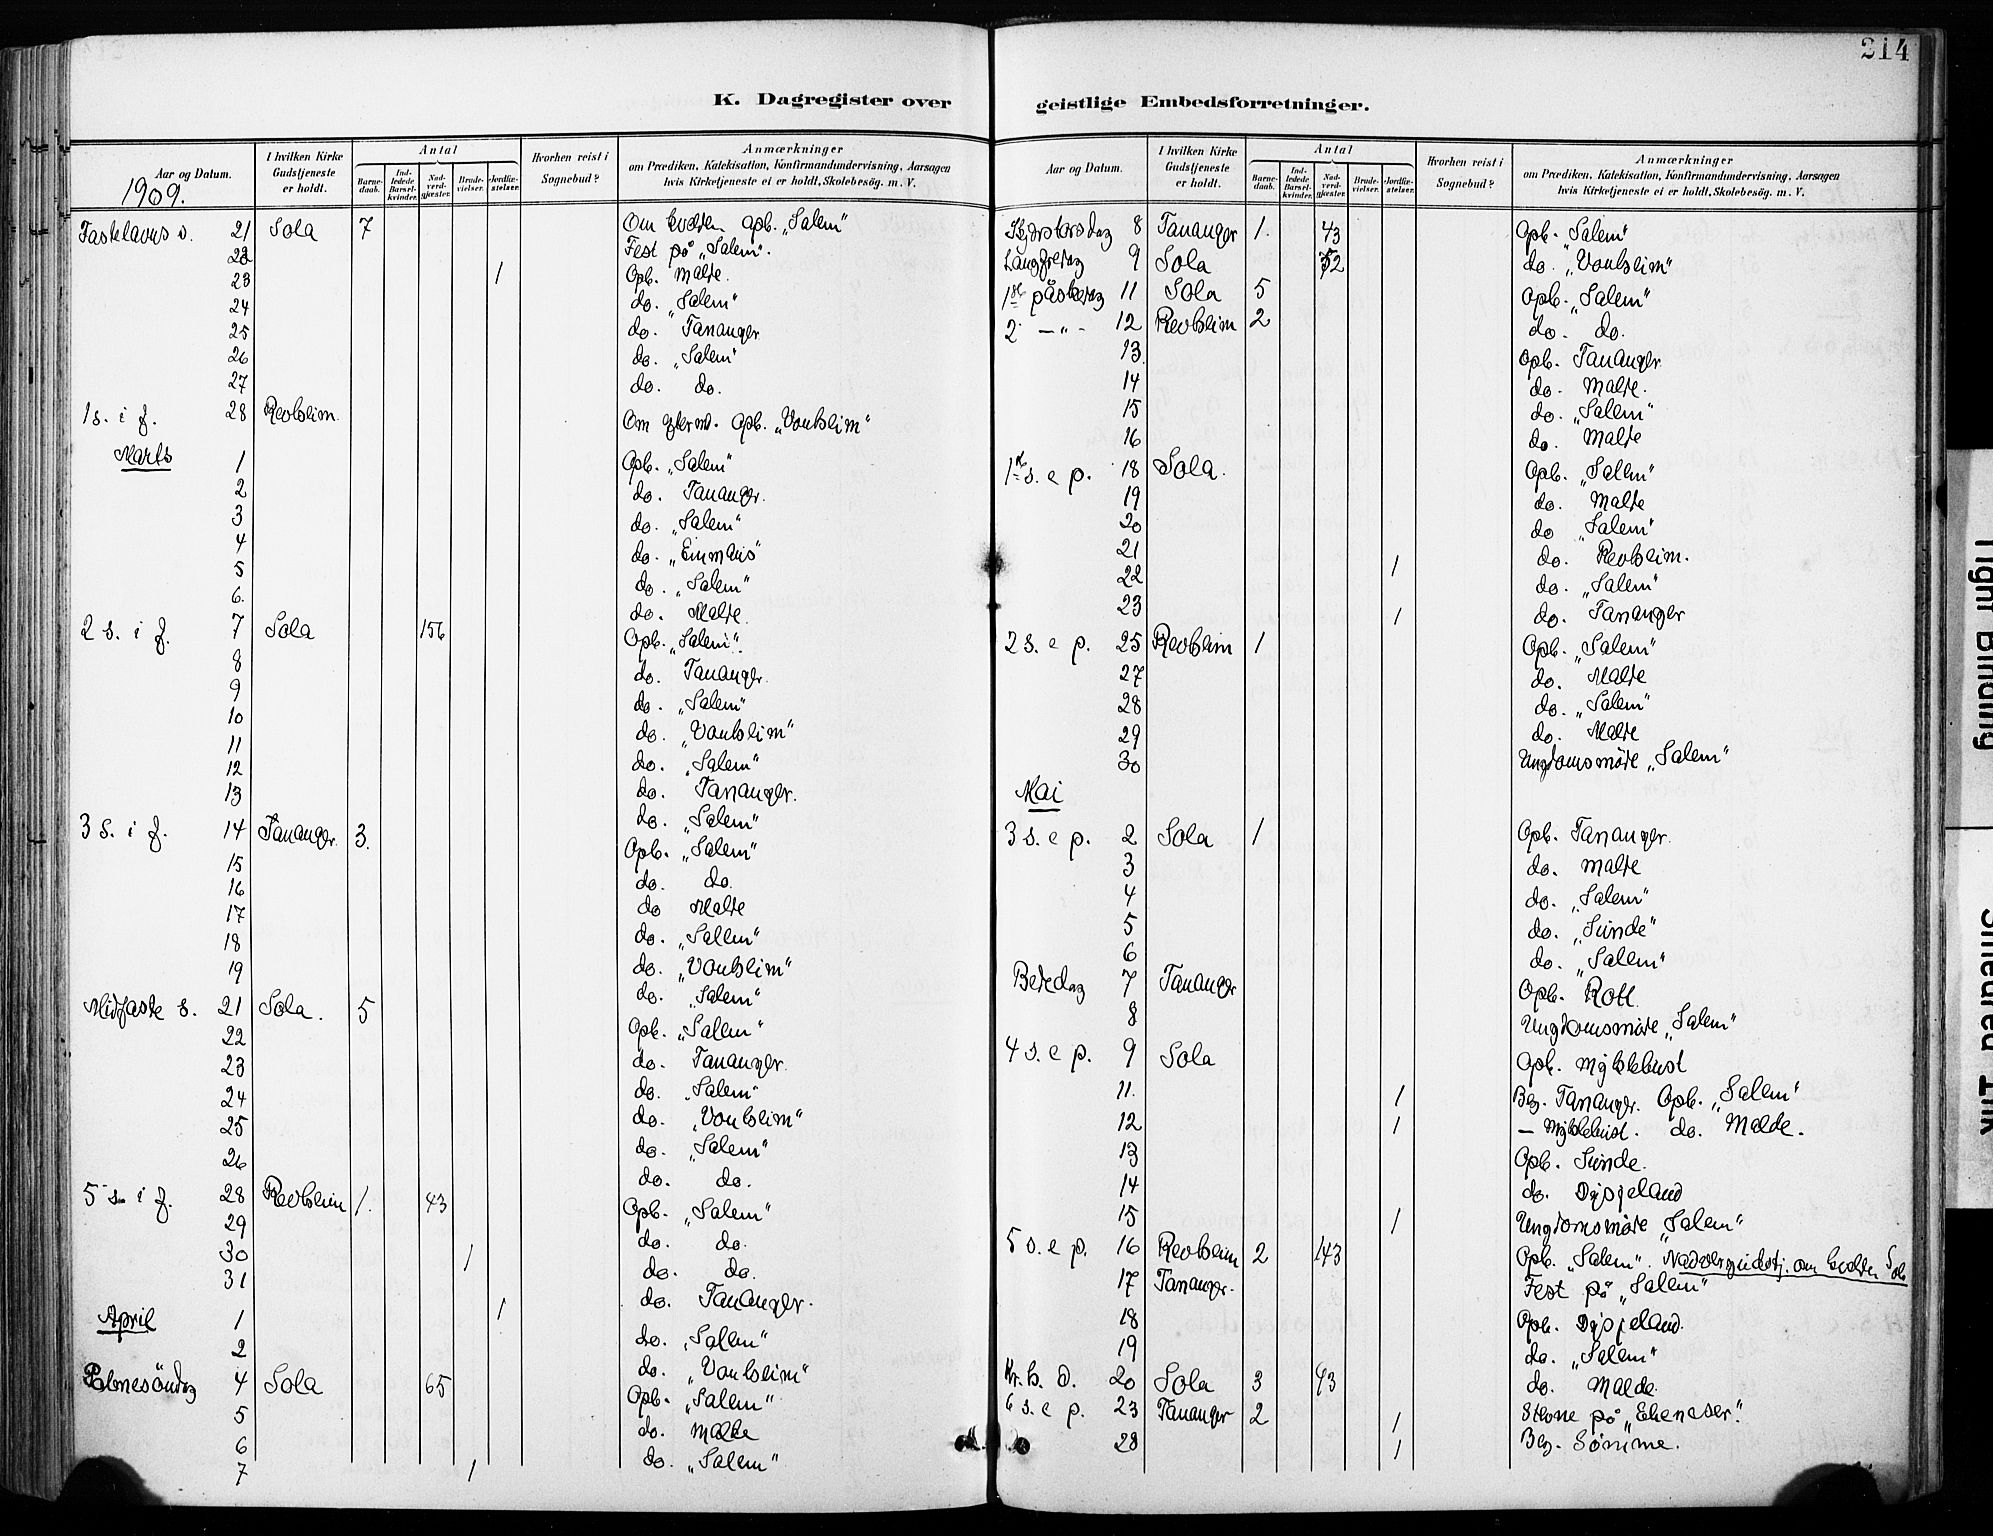 214
K. Dagregister over geistlige Embedsforretninger.
Aar og Datum.
I hvilken Kirke Gudstjeneste er holdt.
Antal
Barnedaab.
Indledede Barselkvinder.
Nadverdgjester.
Brudevielser.
Jordfæstelser.
Hvorhen reist i Sognebud?
Anmærkninger
om Prædiken, Katekisation, Konfirmandundervisning, Aarsagen
hvis Kirketjeneste ei er holdt, Skolebesøg. m. V.
1909.
Fastelavns s. 21 Sola 7 Om kvelden Opb. „Salem"
22 Fest på „Salem".
23 1 Opb. Malde.
24 do. „Salem"
25 do. Tananger
26 do. „Salem"
27 do. do.
1 s. i f. 28 Revheim. Om efterm. Opb. „Vonheim"
Marts 1 Opb. „Salem"
2 do. Tananger.
3 do. „Salem"
4 do. „Emmaus"
5 do. „Salem"
6. do. Malde.
2 s. i f. 7 Sola 156 Opb. „Salem".
8 do. Tananger.
9 do. „Salem"
10 do. „Vonheim"
11 do. „Salem"
12 do. Tananger.
13 do. „Salem"
3 s. i f. 14 Tananger. 3. Opb. „Salem"
15 do. do.
16 do Malde
17 do. „Salem"
18 do. „Vonheim"
19 do. „Salem"
Midfaste s. 21 Sola. 5 Opb. „Salem"
22 do. Tananger.
23 do. „Salem"
24 do. „Vonheim"
25 do. „Salem"
26 do. do.
5 s. i f. 28 Revheim 1. 43 Opb. „Salem"
29 do. do.
30 1 do. do.
31 do. Tananger.
April 1 1 do. „Salem"
2 do. „Vonheim"
Palmesöndag 4 Sola 65 Opb. „Salem"
5 do. Malde
6 do. „Salem"
7 1
Aar og Datum.
I hvilken Kirke Gudstjeneste er holdt.
Antal
Barnedaab.
Indledede Barselkvinder.
Nadverdgjester.
Brudevielser.
Jordfæstelser.
Hvorhen reist i Sognebud?
Anmærkninger
om Prædiken, Katekisation, Konfirmandundervisning, Aarsagen
hvis Kirketjeneste ei er holdt, Skolebesøg. m. V.
Skjærtorsdag 8 Tananger 1. 43 Opb. „Salem"
Langfredag 9 Sola 52 do. „Vonheim"
1ste påskedag 11 Sola 5 Opb. „Salem"
2. — „ - 12 Revheim 2 do. do.
13. Opb. Tananger
14 do. Malde.
15 do. „Salem"
16 do. Malde
1ste s. e p. 18 Sola. Opb. „Salem"
19 do. Malde
20 do „Salem"
21 do. Revheim.
22 1 do. „Salem"
23 1 do. Tananger
2 s. e p. 25 Revheim 1 Opb. „Salem"
27 do. Malde
28 do. „Salem"
29 do. Malde
30 Ungdomsmöte „Salem"
Mai
3 s. e p. 2 Sola 1 Opb. Tananger.
3 do. Malde
4 do. „Salem"
5 do. „Sunde"
6 do. „Salem"
Bededag 7 Tananger Opb. Rott.
8 Ungdomsmöte „Salem"
4 s. e p. 9 Sola Opb. Myklebust
11. 1 Beg. Tananger. Opb. „Salem"
12 1 — Myklebust. do. Malde.
13 Opb. Sunde.
14 do. Dysjeland
15 1 Ungdomsmöte „Salem"
5 s. e p. 16 Revheim 2 143 Opb. „Salem". Nadvergudstj. om kvelden Sola
17 Tananger. Fest på „Salem"
18 Opb. Dysjeland.
19 do. „Salem"
Kr. h. d. 20 Sola 3 43 do. Malde.
6 s. e p. 23 Tananger 2 1 Stevne på „Ebeneser".
28 1 Beg. Sömme.
Tight Binding